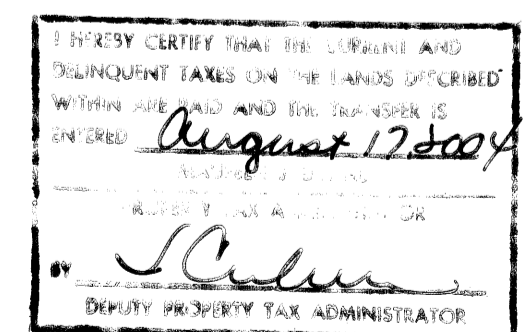 I HEREBY CERTIFY THAT THE CURRENT AND
DELINQUENT TAXES ON THE LANDS DESCRIBED
WITHIN ARE PAID AND THE TRANSFER IS
ENTERED August 17, 2004
PROPERTY TAX ADMINISTRATOR
BY
DEPUTY PROPERTY TAX ADMINISTRATOR